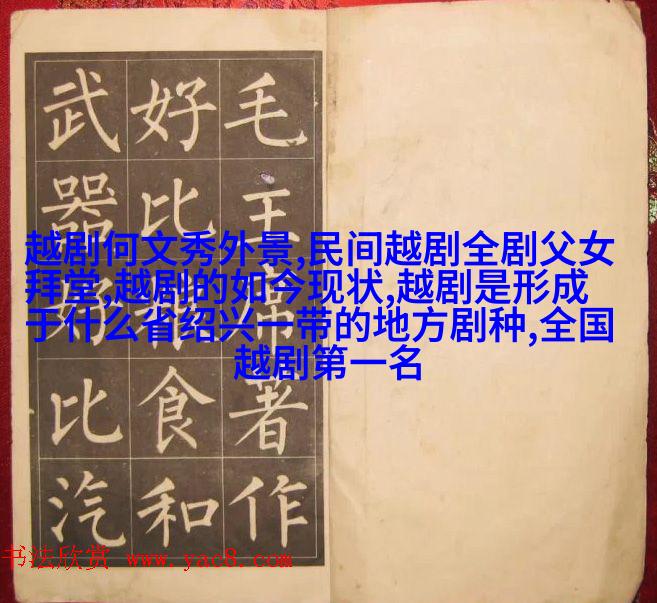 毛主席著作
好比粮食和
武器好比汽
越剧何文秀外景,民间越剧全剧父女
拜堂,越剧的如今现状,越剧是形成
于什么省绍兴一带的地方剧种,全国
越剧第一名
书法欣赏 www.yac8.com